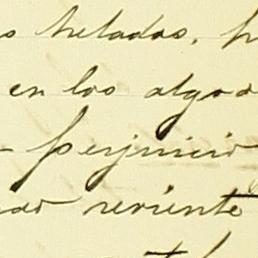 s heladas, h
en los algod
perjuicio
ado reviente